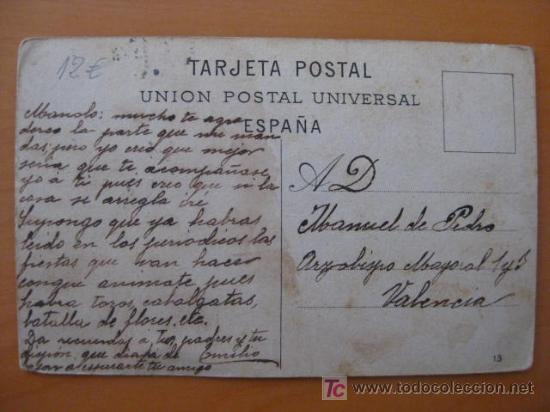 12€
TARJETA POSTAL
UNION POSTAL UNIVERSAL
ESPAÑA
Manolo: mucho te agra
dezco la parte que me man
das; pero yo creo que mejor
seria que te acompañase
yo á ti pues creo que si la
cosa se arregla iré
Supongo que ya habras
leido en los periodicos las
fiestas que van hacer
conque animate pues
habra toros, cabalgatas,
batalla de flores, etc.
Da recuerdos a tus padres y tu
que de Emilio
tu amigo
A D.
Manuel de Pedro
Arzobispo Mayoral
Valencia
13
TC todocoleccion
www.todocoleccion.net